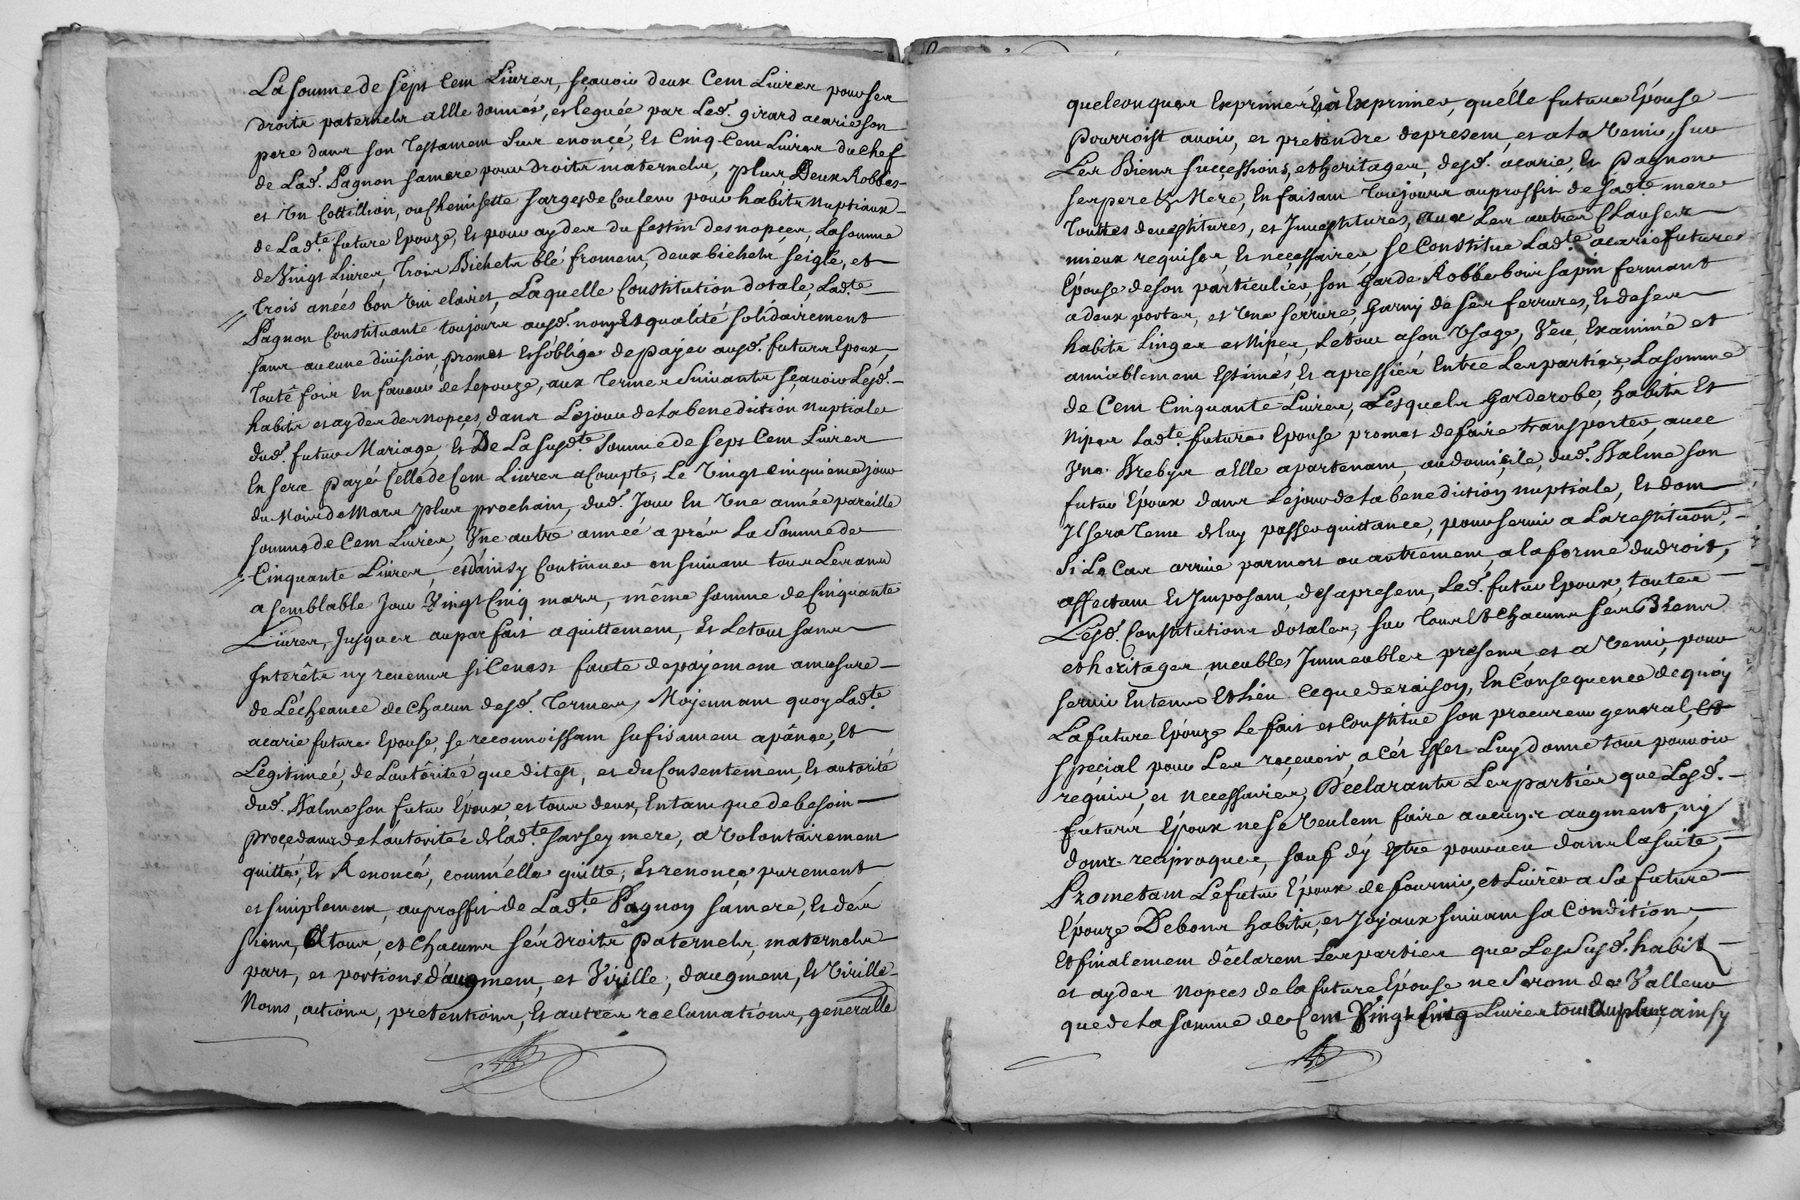 La somme de sept Cem Livres, sçauoir deux Cem Livres pour ses
droits paternels a Elle donnés, et leguée par Led. girard acarie son
pere dans son Testament sus enoncé, Et Cinq Cem Livres du chef
de Lad. Pagnon sa mere pour droits maternels, plus Deux Robbes
et Un Cottillion, ou Chemisette sarges de Couleur pour habits nuptiaux
de Lad.te future Epouze, Et pour ayder du festin des nopçes, La somme
de Vingt Livres, Trois Bichets blé froment, deux bichets seigle, et
Trois anées bon Vin clairet, Laquelle Constitution dotale, Lad.te
Pagnon Constituante toujours ausd. noms Et qualité solidairement
sans aucune division, promet Et s'oblige de payer ausd. futurs Epoux,
Toutê fois En faueur de Lepouze, aux Termes Suiuants sçauoir Lesd.
habits et ayder des nopçes, dans Le jour de la benediction nuptiale
dud. futur Mariage, Et De La susd.te somme de sept Cem Livres
En sera payé Celle de Cem Livres a Compte, Le Vingt cinquieme jour
du Mois de Mars plus prochain, dud. Jour En Une année pareille
somme de Cem Livres, Vne autré année aprés La Somme de
Cinquante Livres, et d'ainsy Continuer en suiuant tous Les ans
a semblable Jour Vingt Cinq mars, même somme de Cinquante
Livres, Jusques au parfait aquittement, Et Le tout sans
Interêts ny reuenus si Cenest faute de payement amesure
de Léchéance de Chacun desd. Termes, Moyennant quoy Lad.te
acarie future Epouse, se reconnoissant sufisament apânée, Et
Légitimeé, de Lautôriteé que dit est, et du Consentement, Et autorité
dud. Nalme son futur Epoux, et tous deux, En tant que de besoin
procedants de Lautoriteé de Lad.te sarsey mere, a Volontairement
quitté, Et Renoncé, comm'élle quitte, Et renonçe purement
et simplement, au proffit de Lad.te Pagnon sa mere, Et des
siens, A tous, et Chacuns sés droits paternels, maternels
part, et portions d'augment, et Virille, d'augment, Et Virille
Noms, actions, pretentions, Et autres réclamations, generalle
quelconques Exprimés, Et à Exprimer, qu'élle future Epouse
Pourroist auoir, et pretendre de present, et a La Venir, sur
Les Biens sucçessions, et heritages, desd. acarie, Et Pagnon
ses pere Et Mere, En faisant Toujours au proffit de sad.te mere
Touttes deuestitures, et Inuestitures, aux Les autres Clauses
mieux requises, Et neçessaires se Constitue Lad.te acarie future
Epouse de son particulier son Garde Robbe bois sapin fermant
a deux portes, et Une serrure, Garny de ses ferrures, Et de ses
habits Linges et Nipes, Le tout a son Usage, Véu, Examiné et
amiablement Estimés, Et apressiés Entre Les parties, La somme
de Cem Cinquante Livres, Lesquels Garderobe, habits Et
Nipes Lad.te future Epouse promet de faire transporter, auec
Vne Brebys a Elle apartenant, au domicile, dud. Nalme son
futur Epoux dans Le jour de la benediction nuptiale, Et dont
Il sera Tenu de luy passer quittance, pour seruir a La restituon,
Si Le Cas arriue par mort ou autrement, a la forme du droit,
affectant Et Imposant, des apresent, Led. futur Epoux, toutes
Lesd. Constitutions dotales, sur Tous Et Chacuns ses Biens
et heritages, meubles Immeubles presens et a Venir, pour
seruir En tems Et Lieu Ce que de raison, En Consequence de quoy
La future Epouze Le fait et Constitue son procureur general, Et
special pour Les reçeuoir, a Cét Effet Luy donne tout pouuoir
requis, et necessaires, Declarants Les parties que Lesd.
futurs Epoux ne se Veulent faire aucuns augment, ny
dons reciproques, sauf d'y Estre pourueu dans la suite,
Prometant Le futur Epoux de fournir, et Liurêr a Sa future
Epouze De bons habits, et Joyaux suiuant sa Condition,
Et finalement déclarent Les parties que Les Susd. habits
et ayder nopces de la future Epouse ne Seront de Valleur
que de La somme de Cem Vingt Cinq Livres tout Au plus, ainsy